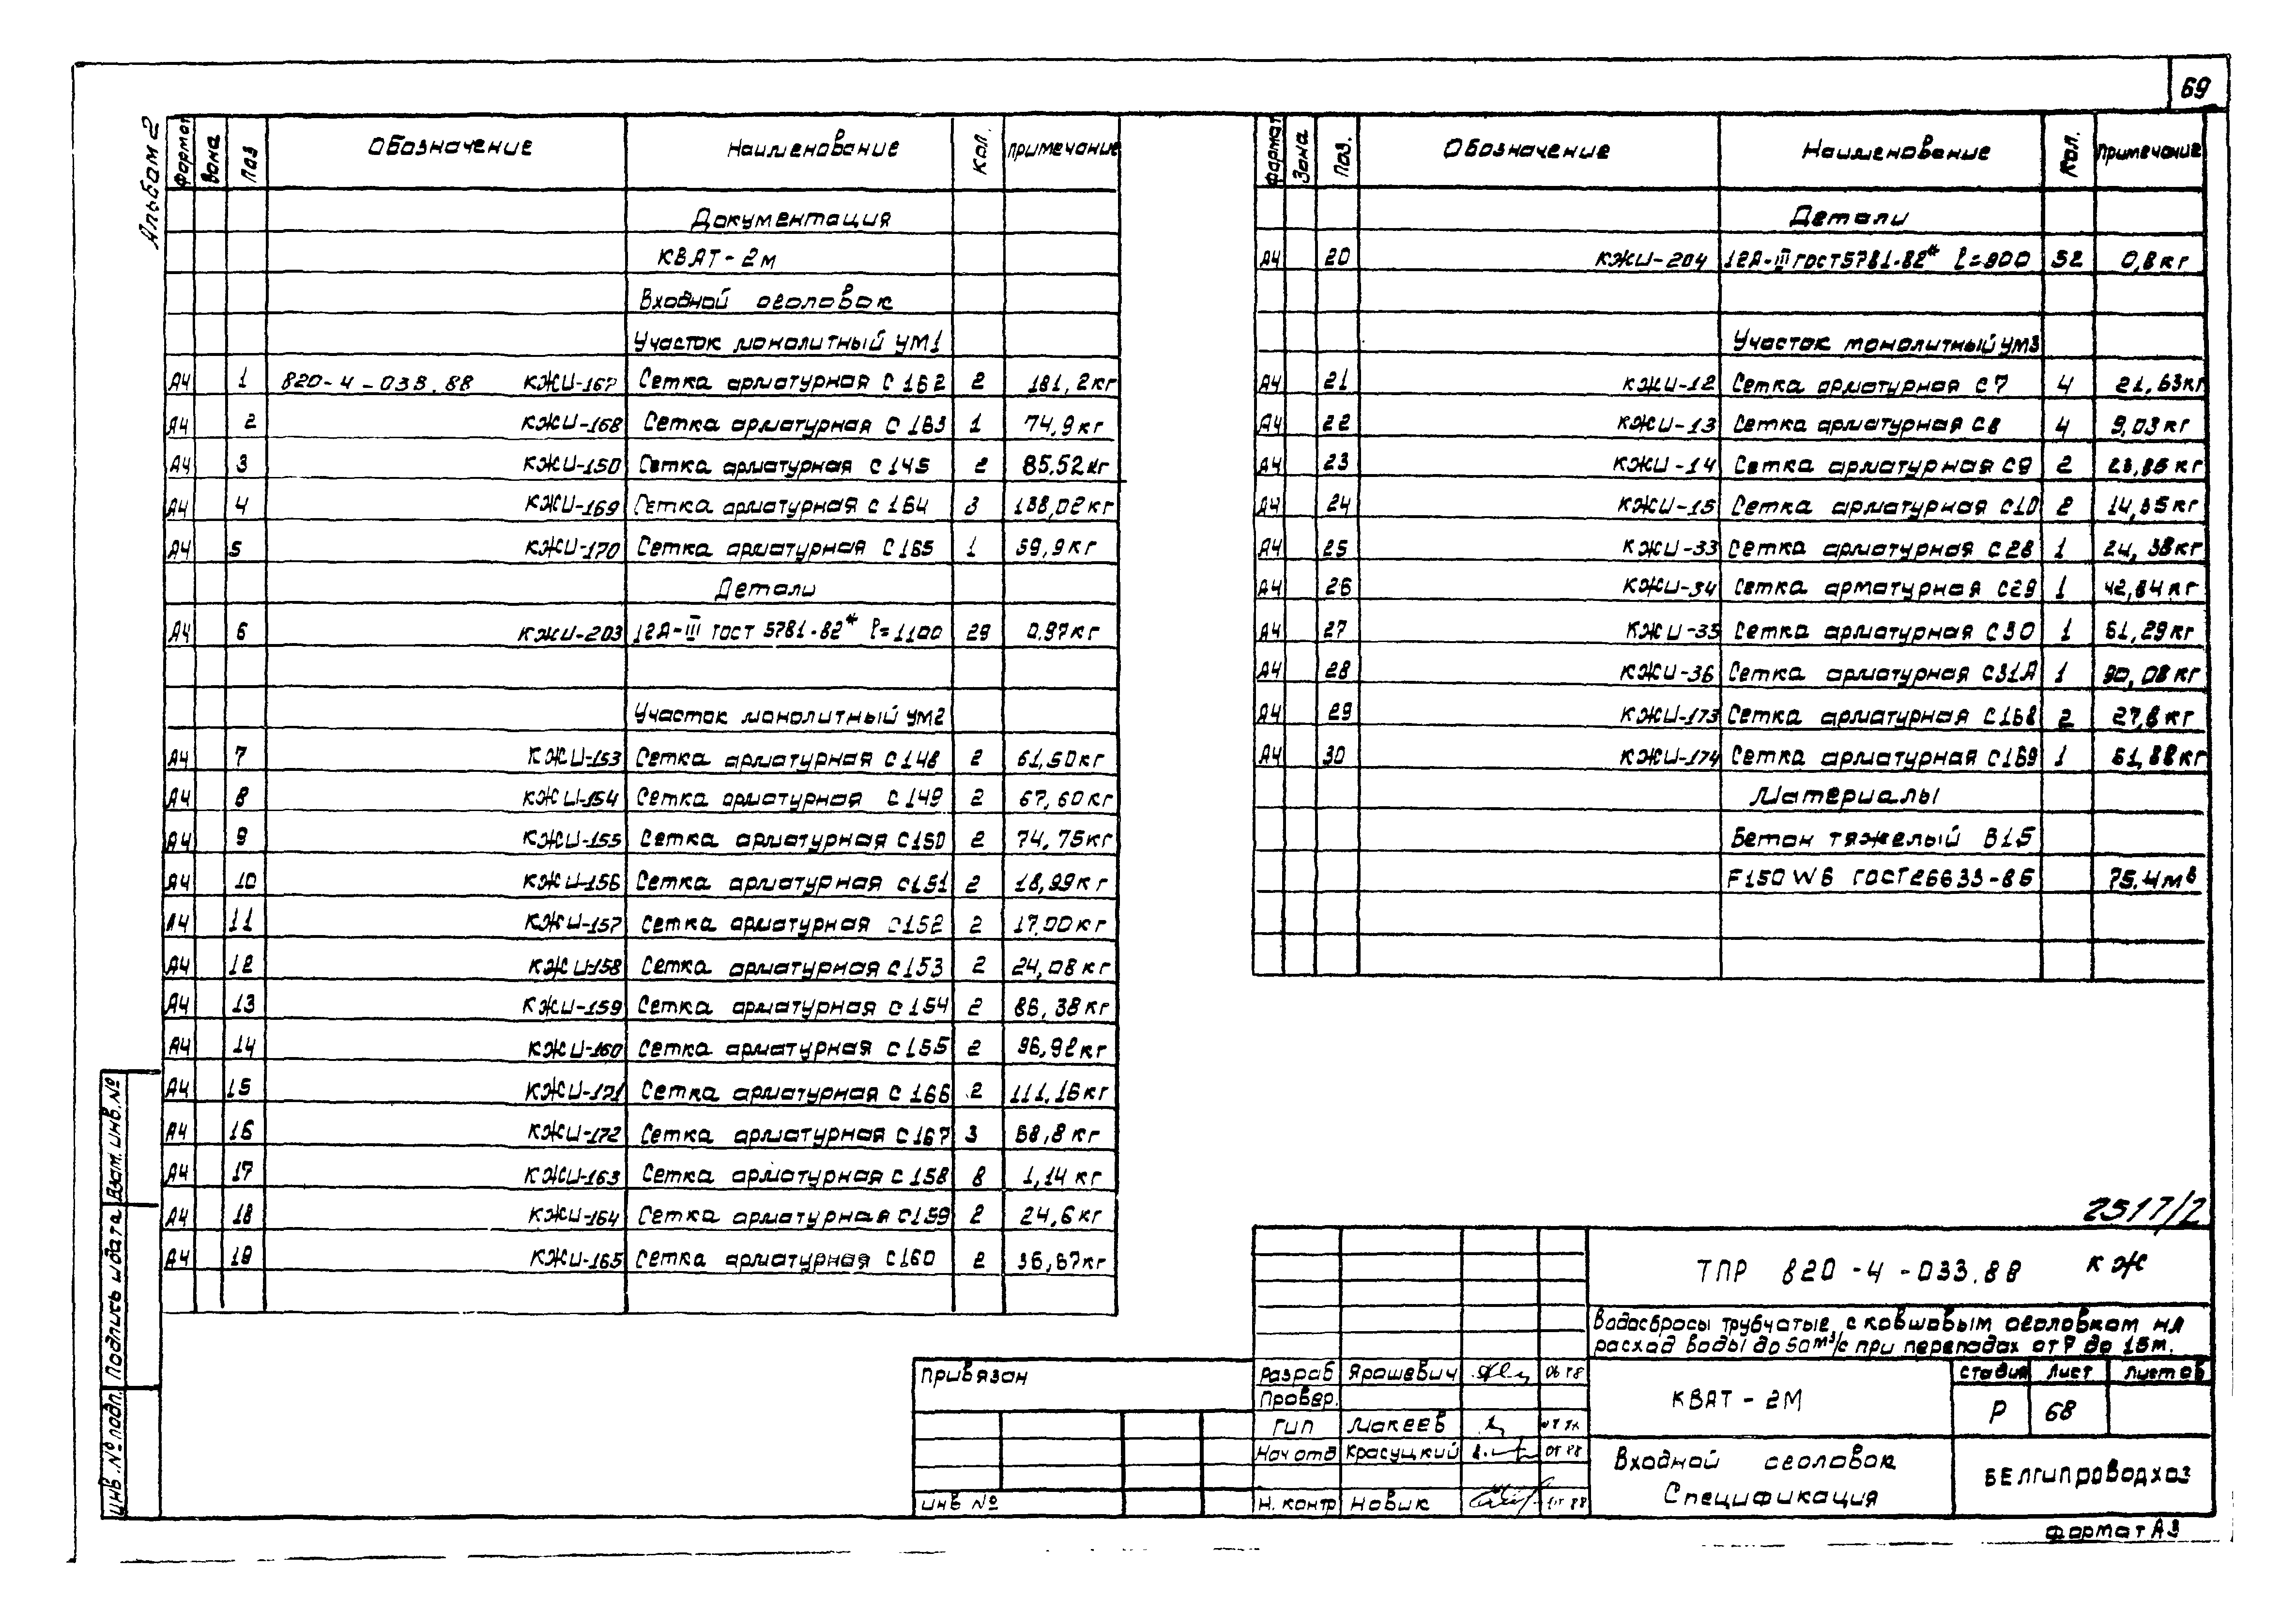 69
Альбом 2
Формат Зона Поз Обозначение Наименование Кол. Примечание
Документация
КВАТ-2м
Входной оголовок
Участок монолитный УМ1
А4 1 820-4-033.88 КЖИ-167 Сетка арматурная С162 2 181,2кг
А4 2 КЖИ-168 Сетка арматурная С163 1 74,9кг
А4 3 КЖИ-150 Сетка арматурная С145 2 85,52кг
А4 4 КЖИ-169 Сетка арматурная С164 3 138,02кг
А4 5 КЖИ-170 Сетка арматурная С165 1 59,9кг
Детали
А4 6 КЖИ-203 12А-III ГОСТ 5781-82* ℓ=1100 29 0,97кг
Участок монолитный УМ2
А4 7 КЖИ-153 Сетка арматурная С148 2 61,50кг
А4 8 КЖИ-154 Сетка арматурная С149 2 67,60кг
А4 9 КЖИ-155 Сетка арматурная С150 2 74,75кг
А4 10 КЖИ-156 Сетка арматурная С151 2 18,99кг
А4 11 КЖИ-157 Сетка арматурная С152 2 17,00кг
А4 12 КЖИ-158 Сетка арматурная С153 2 24,08кг
А4 13 КЖИ-159 Сетка арматурная С154 2 86,38кг
А4 14 КЖИ-160 Сетка арматурная С155 2 96,92кг
А4 15 КЖИ-171 Сетка арматурная С166 2 111,16кг
А4 16 КЖИ-172 Сетка арматурная С167 3 68,8кг
А4 17 КЖИ-163 Сетка арматурная С158 8 1,14кг
А4 18 КЖИ-164 Сетка арматурная С159 2 24,6кг
А4 19 КЖИ-165 Сетка арматурная С160 2 36,67кг
Формат Зона Поз. Обозначение Наименование Кол. Примечание
Детали
А4 20 КЖИ-204 12А-III ГОСТ 5781-82* ℓ=900 52 0,8кг
Участок монолитный УМ3
А4 21 КЖИ-12 Сетка арматурная С7 4 21,63кг
А4 22 КЖИ-13 Сетка арматурная С8 4 9,03кг
А4 23 КЖИ-14 Сетка арматурная С9 2 23,85кг
А4 24 КЖИ-15 Сетка арматурная С10 2 14,35кг
А4 25 КЖИ-33 Сетка арматурная С28 1 24,38кг
А4 26 КЖИ-34 Сетка арматурная С29 1 42,84кг
А4 27 КЖИ-35 Сетка арматурная С30 1 61,29кг
А4 28 КЖИ-36 Сетка арматурная С31А 1 90,08кг
А4 29 КЖИ-173 Сетка арматурная С168 2 27,8кг
А4 30 КЖИ-174 Сетка арматурная С169 1 61,88кг
Материалы
Бетон тяжелый В15
F150 W6 ГОСТ 26633-85 75.4м³
2517/2
ТПР 820-4-033.88 КЖ
Водосбросы трубчатые с ковшовым оголовком на
расход воды до 50м³/с при перепадах от 7 до 15м.
Привязан
Инв №
Разраб Ярошевич
Провер.
ГИП Макеев
Нач отд Красуцкий
Н. контр Новик
КВАТ-2М
Стадия Лист Листов
Р 68
Входной оголовок
Спецификация
Белгипроводхоз
Формат А3
Взам.инв.№
Подпись и дата
Инв.№ подл.